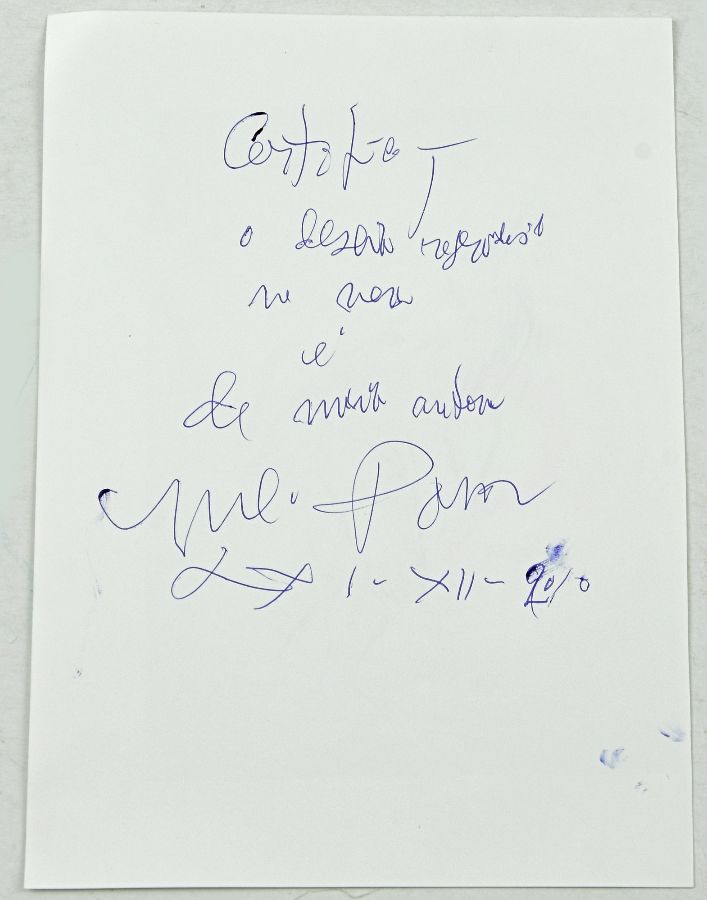 Certifico
o desenho reproduzido
no verso
é
de minha autoria
Júlio Pomar
XXI - XII - 2010